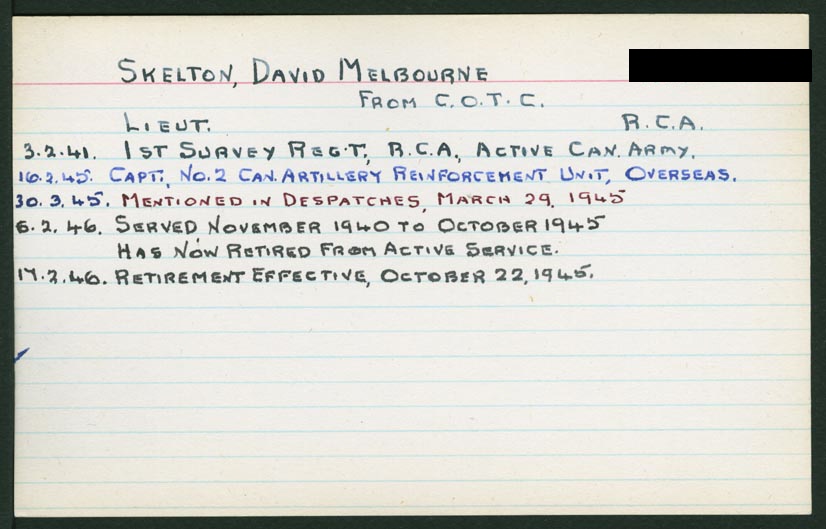 SKELTON, DAVID MELBOURNE
FROM C.O.T.C.
LIEUT. R.C.A.
3.2.41. 1ST SURVEY REG'T., R.C.A., ACTIVE CAN. ARMY.
16.2.45. CAPT., NO.2 CAN. ARTILLERY REINFORCEMENT UNIT, OVERSEAS.
30.3.45. MENTIONED IN DESPATCHES, MARCH 29, 1945
6.2.46. SERVED NOVEMBER 1940 TO OCTOBER 1945
HAS NOW RETIRED FROM ACTIVE SERVICE.
17.2.46. RETIREMENT EFFECTIVE, OCTOBER 22, 1945.